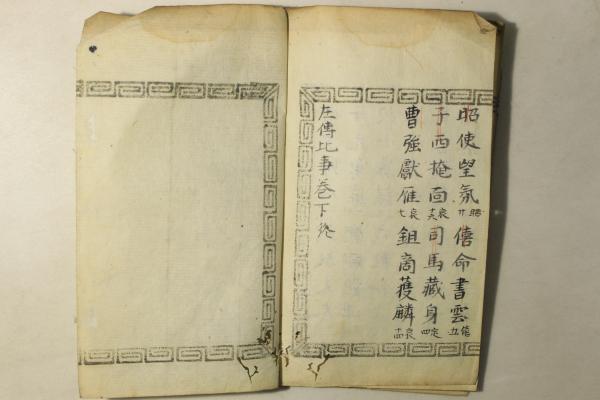 昭使望氛昭廿僖命書雲僖五
子西掩面哀十六司馬藏身定四
曹強獻雁哀七鉏商獲麟哀十四
左傳比事卷下終